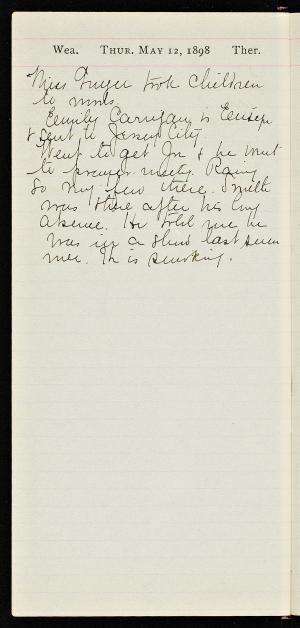 Wea. THUR. MAY 12, 1898 Ther.
Miss took Children
to
Emily Carrigan is
& sent to Jersey City.
Went to get Jn & he went
to prayer meetg. Rainy
so very few there. Smith
was there after his long
absence. He told me he
was in a show last sum
mer. He is smoking.